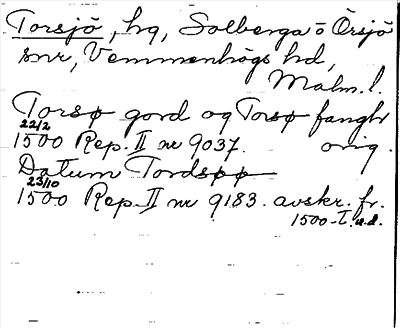 Torsjö, hg, Solberga o Örsjö
snr, Vemmenhögs hd,
Malm. l.
Torsø gord og Torsø fangh
22/2
1500 Rep. II nr 9037. orig.
Datum Tordsøø
23/10
1500 Rep. II nr 9183. avskr. fr.
1500-t. u.d.